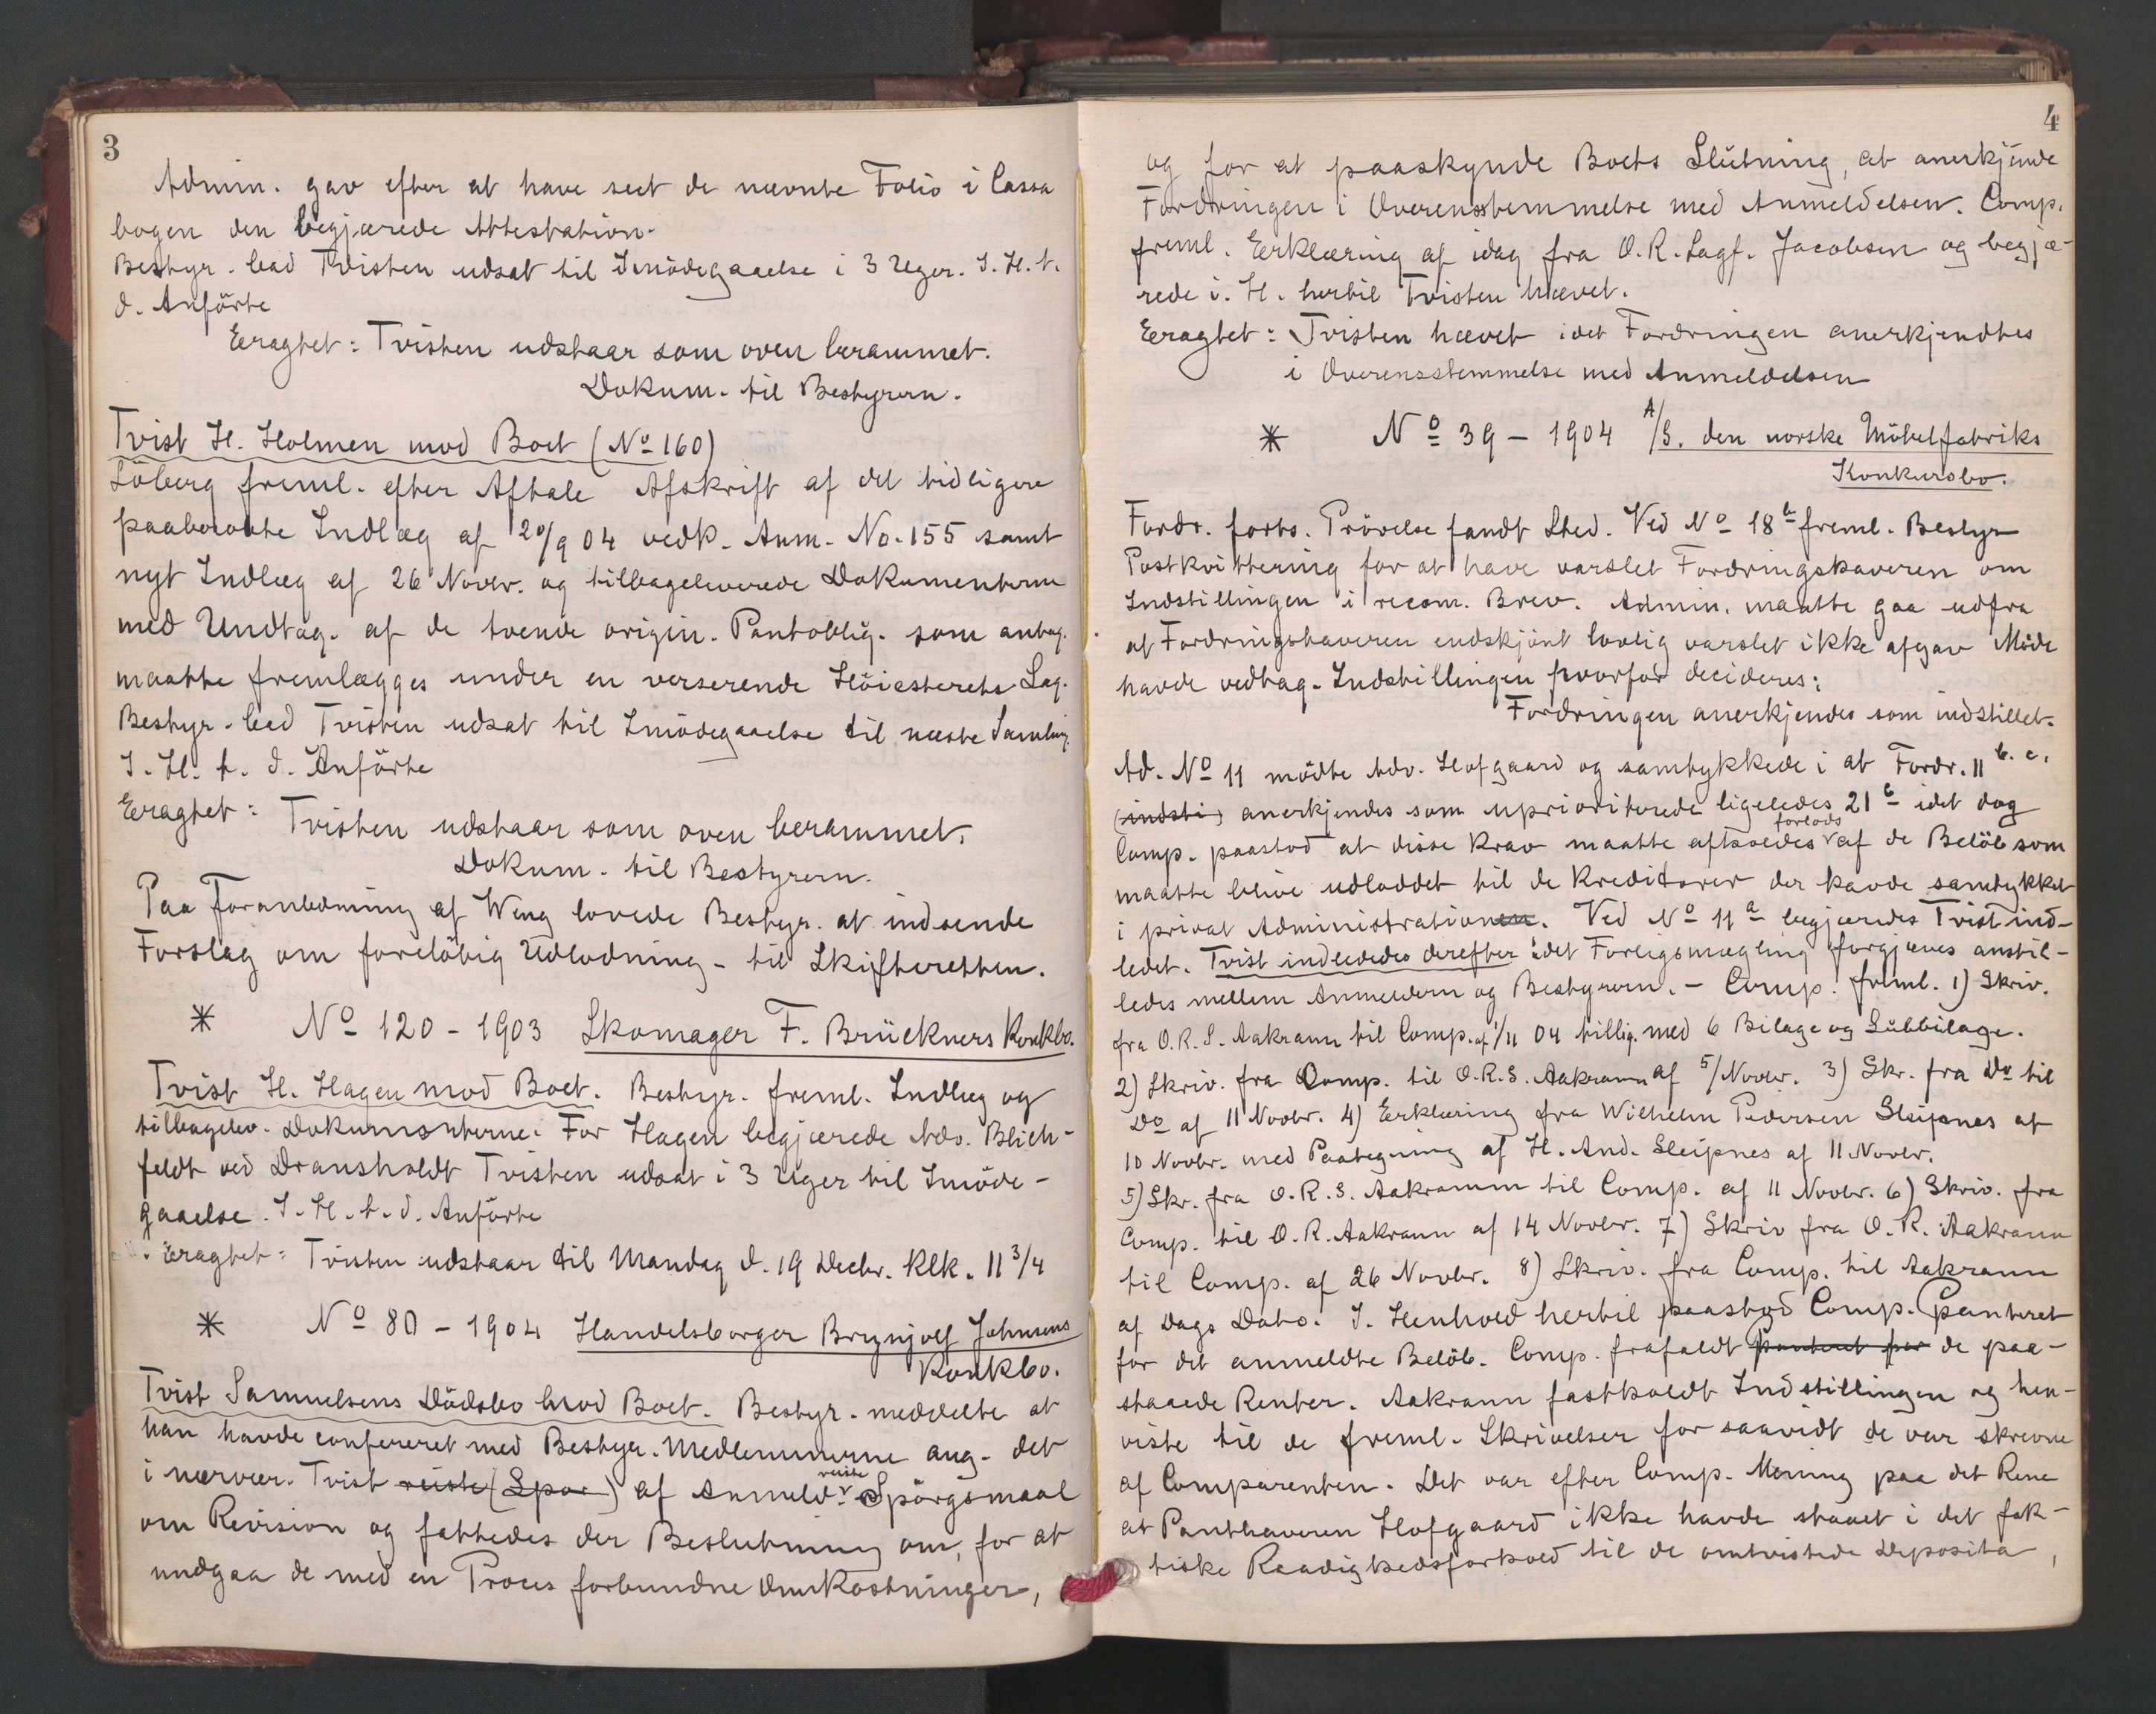 3
Admin. gav efter at have seet de nævnte Folio i Cassa
bogen den begjærede Attestation.
Bestyr. bad Tvisten udsat til Imödegaaelse i 3 Uger. I. H. t.
d. Anförte
Eragtet: Tvisten udstaar som oven berammet.
Dokum. til Bestyreren.
Tvist H. Holmen mod Boet (No 160)
Löberg freml. efter Aftale Afskrift af det tidligere
paaberobte Indlæg af 20/9 04 vedk. Anm. No. 155 samt
nyt Indlæg af 26 Novbr. og tilbageleverede Dokumenterne
med Undtag. af de tvende origin. Pantoblig. som antag.
maatte fremlægges under en verserende Höiesterets Sag.
Bestyr. bad Tvisten udsat til Imödegaaelse til næste Samling.
I. H. t. d. Anförte
Eragtet: Tvisten udstaar som oven berammet.
Dokum. til Bestyreren.
Paa Foranledning af Weng lovede Bestyr. at indsende
Forslag om forelöbig Udlodning - til Skifteretten.
* No 120 - 1903 Skomager F. Brückners Konkbo.
Tvist H. Hagen mod Boet. Bestyr. freml. Indlæg og
tilbagelev. Dokumenterne. For Hagen begjærede Adv. Blich-
feldt ved Dransholdt Tvisten udsat i 3 Uger til Imöde-
gaaelse. I. H. t. d. Anförte
Eragtet: Tvisten udstaar til Mandag d. 19 Decbr. Klk. 11 3/4
* No 80 - 1904 Handelsborger Brynjolf Johnsens
Konkbo.
Tvist Samuelsens Dödsbo mod Boet. Bestyr. meddelte at
han havde confereret med Bestyr. Medlemmerne ang. det
i nærvær. Tvist reiste (Spör) af Anmeld. reiste Spörgsmaal
om Revision og fattedes der Beslutning om, for at
undgaa de med en Proces forbundne Omkostninger,
4
og for at paaskynde Boets Slutning, at anerkjende
Fordringen i Overensstemmelse med Anmeldelsen. Comp.
freml. Erklæring af idag fra O.R.Sagf. Jacobsen og begjæ-
rede i. H. hertil Tvisten hævet.
Eragtet: Tvisten hævet idet Fordringen anerkjendtes
i Overensstemmelse med Anmeldelsen
* No 39 - 1904 A/S. den norske Möbelfabriks
Konkursbo.
Fordr. forts. Prövelse fandt Sted. Ved No 18 freml. Bestyr
Postkvittering for at have varslet Fordringshaveren om
Indstillingen i recom. Brev. Admin. maatte gaa udfra
at Fordringshaveren endskjönt lovlig varslet ikke afgav Möde
havde vedtag. Indstillingen hvorfor decideres:
Fordringen anerkjendes som indstillet.
Ad. No 11 mödte Adv. Hofgaard og samtykkede i at Fordr. 11 b. c.
(indsti) anerkjendes som uprioriterede ligeledes 21 b idet dog
Comp. paastod at disse Krav maatte aftholdes forlods af de Belöb som
maatte blive udloddet til de Kreditorer der havde samtykket
i privat Administrationen. Ved No 11 a begjærdes Tvist ind-
ledet. Tvist indlededes derefter idet Forligsmægling forgjæves anstil-
ledes mellem Anmelderen og Bestyreren. - Comp. freml. 1) Skriv.
fra O.R.S. Aakrann til Comp. af 1/11 04 tillig. med 6 Bilage og Subbilage.
2) Skriv. fra Comp. til O.R.S. Aakrann af 5/Novbr. 3) Skr. fra Do til
Do af 11 Novbr. 4) Erklæring fra Wilhelm Pedersen Sleipnes af
10 Novbr. med Paategning af H. And. Sleipnes af 11 Novbr.
5) Skr. fra O.R.S. Aakrann til Comp. af 11 Novbr. 6) Skriv. fra
Comp. til O.R. Aakrann af 14 Novbr. 7) Skriv fra O.R. Aakrann
til Comp. af 26 Novbr. 8) Skriv. fra Comp. til Aakrann
af Dags Dato. I. Henhold hertil paastod Comp. Panteret
for det anmeldte Belöb. Comp. frafaldt Panteret for de paa-
staaede Renter. Aakrann fastholdt Indstillingen og hen-
viste til de freml. Skrivelser for saavidt de var skrevne
af Comparenten. Det var efter Comp. Mening paa det Rene
at Panthaveren Hofgaard ikke havde staaet i det fak-
tiske Raadighedsforhold til de omtvistede Deposita,